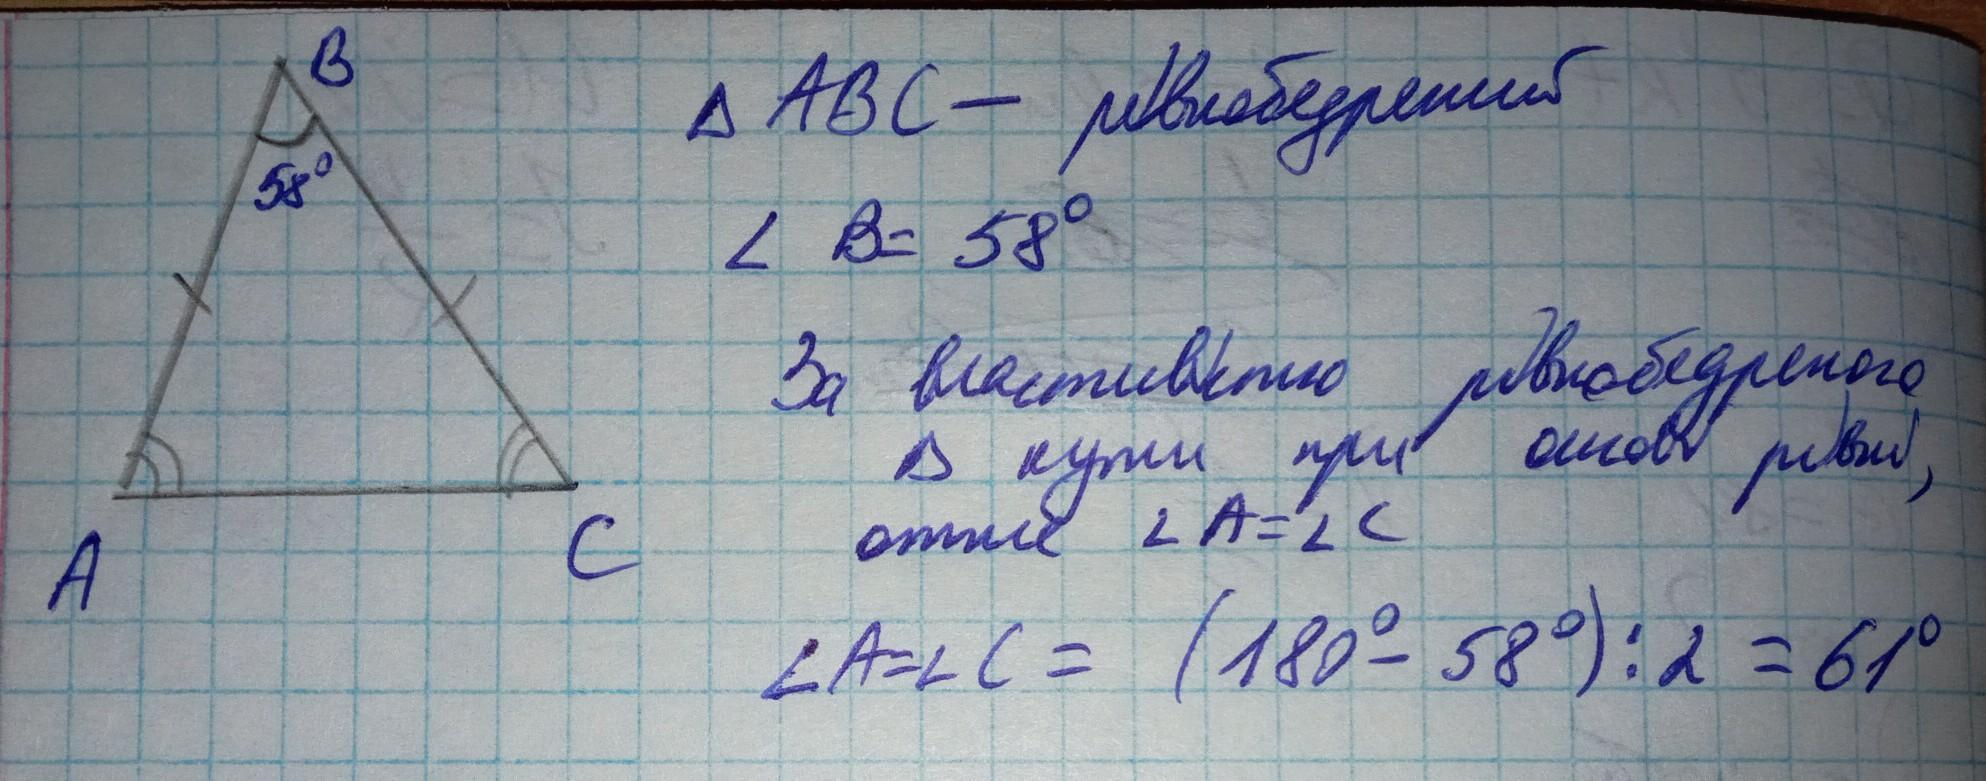 B
58°
A
C
Δ ABC — рівнобедрений
∠ B = 58°
За властивістю рівнобедреного
Δ кути при основі рівні,
отже ∠ A = ∠ C
∠ A = ∠ C = (180° - 58°) : 2 = 61°